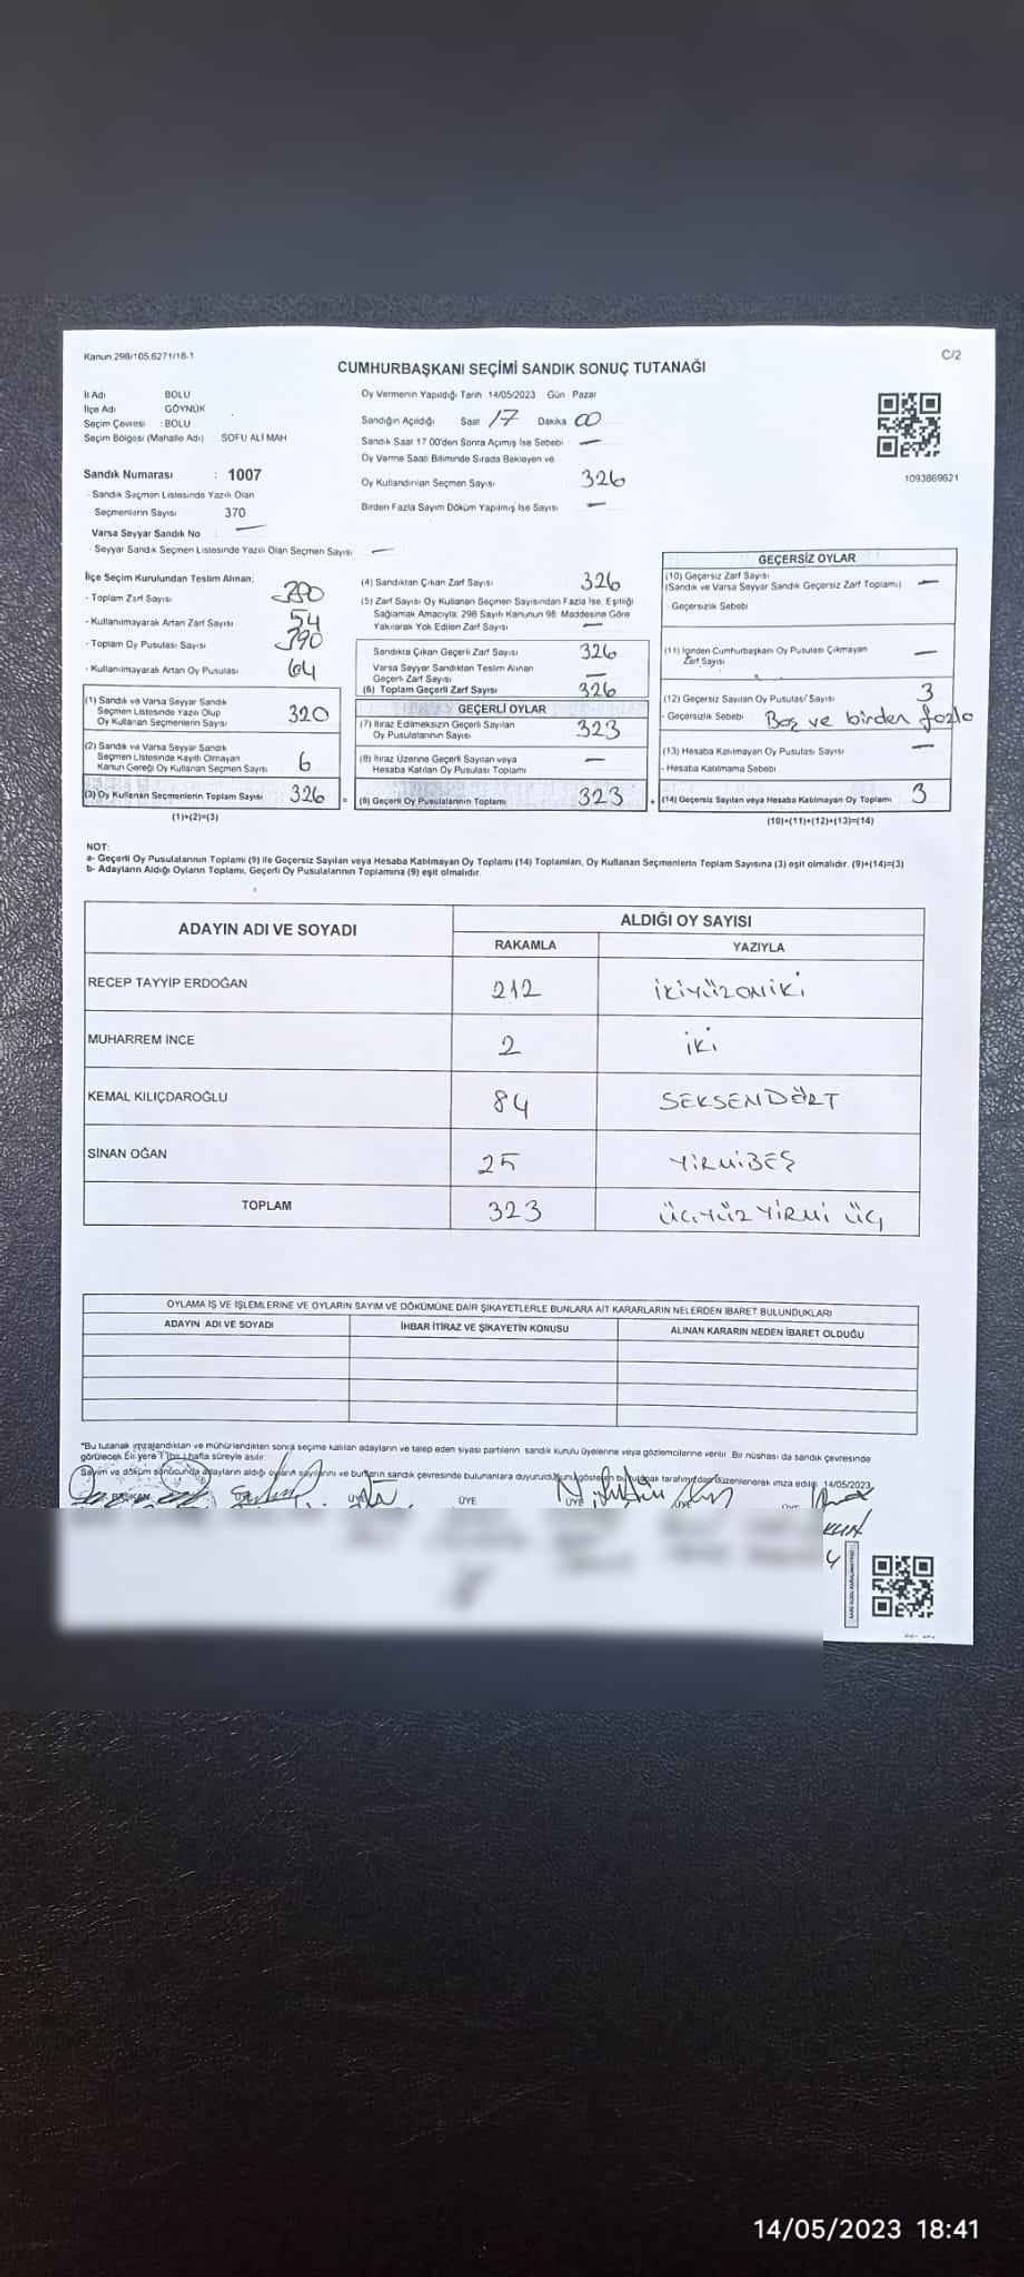 Kanun 298/105.6271/18-1
C/2
CUMHURBAŞKANI SEÇİMİ SANDIK SONUÇ TUTANAĞI
İl Adı BOLU
İlçe Adı GÖYNÜK
Seçim Çevresi : BOLU
Seçim Bölgesi (Mahalle Adı) SOFU ALİ MAH
Sandık Numarası : 1007
- Sandık Seçmen Listesinde Yazılı Olan
Seçmenlerin Sayısı 370
Varsa Seyyar Sandık No —
- Seyyar Sandık Seçmen Listesinde Yazılı Olan Seçmen Sayısı —
Oy Vermenin Yapıldığı Tarih 14/05/2023 Gün Pazar
Sandığın Açıldığı Saat 17 Dakika 00
Sandık Saat 17 00'den Sonra Açılmış İse Sebebi —
Oy Verme Saati Bitiminde Sırada Bekleyen ve
Oy Kullandırılan Seçmen Sayısı 326
Birden Fazla Sayım Döküm Yapılmış İse Sayısı —
1093869621
İlçe Seçim Kurulundan Teslim Alınan;
- Toplam Zarf Sayısı
- Kullanılmayarak Artan Zarf Sayısı 54
- Toplam Oy Pusulası Sayısı 390
- Kullanılmayarak Artan Oy Pusulası 64
(1) Sandık ve Varsa Seyyar Sandık
Seçmen Listesinde Yazılı Olup
Oy Kullanan Seçmenlerin Sayısı 320
(2) Sandık ve Varsa Seyyar Sandık
Seçmen Listesinde Kayıtlı Olmayan
Kanun Gereği Oy Kullanan Seçmen Sayısı 6
(3) Oy Kullanan Seçmenlerin Toplam Sayısı 326 =
(1)+(2)=(3)
(4) Sandıktan Çıkan Zarf Sayısı 326
(5) Zarf Sayısı Oy Kullanan Seçmen Sayısından Fazla İse, Eşitliği
Sağlamak Amacıyla; 298 Sayılı Kanunun 98. Maddesine Göre
Yakılarak Yok Edilen Zarf Sayısı —
Sandıkta Çıkan Geçerli Zarf Sayısı 326
Varsa Seyyar Sandıktan Teslim Alınan
Geçerli Zarf Sayısı —
(6) Toplam Geçerli Zarf Sayısı 326
GEÇERLİ OYLAR
(7) İtiraz Edilmeksizin Geçerli Sayılan
Oy Pusulalarının Sayısı 323
(8) İtiraz Üzerine Geçerli Sayılan veya
Hesaba Katılan Oy Pusulası Toplamı —
(9) Geçerli Oy Pusulalarının Toplamı 323 +
GEÇERSİZ OYLAR
(10) Geçersiz Zarf Sayısı
(Sandık ve Varsa Seyyar Sandık Geçersiz Zarf Toplamı) —
- Geçersizlik Sebebi
(11) İçinden Cumhurbaşkanı Oy Pusulası Çıkmayan
Zarf Sayısı —
(12) Geçersiz Sayılan Oy Pusulası Sayısı 3
- Geçersizlik Sebebi Boş ve birden fazla
(13) Hesaba Katılmayan Oy Pusulası Sayısı —
- Hesaba Katılmama Sebebi
(14) Geçersiz Sayılan veya Hesaba Katılmayan Oy Toplamı 3
(10)+(11)+(12)+(13)=(14)
NOT:
a- Geçerli Oy Pusulalarının Toplamı (9) ile Geçersiz Sayılan veya Hesaba Katılmayan Oy Toplamı (14) Toplamları, Oy Kullanan Seçmenlerin Toplam Sayısına (3) eşit olmalıdır. (9)+(14)=(3)
b- Adayların Aldığı Oyların Toplamı, Geçerli Oy Pusulalarının Toplamına (9) eşit olmalıdır.
ADAYIN ADI VE SOYADI
ALDIĞI OY SAYISI
RAKAMLA YAZIYLA
RECEP TAYYİP ERDOĞAN 212 İKİYÜZONİKİ
MUHARREM İNCE 2 İKİ
KEMAL KILIÇDAROĞLU 84 SEKSENDÖRT
SİNAN OĞAN 25 YİRMİBEŞ
TOPLAM 323 ÜÇYÜZ YİRMİ ÜÇ
OYLAMA İŞ VE İŞLEMLERİNE VE OYLARIN SAYIM VE DÖKÜMÜNE DAİR ŞİKAYETLERLE BUNLARA AİT KARARLARIN NELERDEN İBARET BULUNDUKLARI
ADAYIN ADI VE SOYADI İHBAR İTİRAZ VE ŞİKAYETİN KONUSU ALINAN KARARIN NEDEN İBARET OLDUĞU
*Bu tutanak imzalandıktan ve mühürlendikten sonra seçime katılan adayların ve talep eden siyasi partilerin sandık kurulu üyelerine veya gözlemcilerine verilir. Bir nüshası da sandık çevresinde
görülecek bir yere 1 bir hafta süreyle asılır.
Sayım ve döküm sonucunda adayların aldığı oyların sayılarını ve bunların sandık çevresinde bulunanlara duyurulduğunu gösteren bu tutanak tarafımızdan düzenlenerek imza edildi. 14/05/2023
BAŞKAN ÜYE ÜYE ÜYE ÜYE ÜYE
14/05/2023 18:41